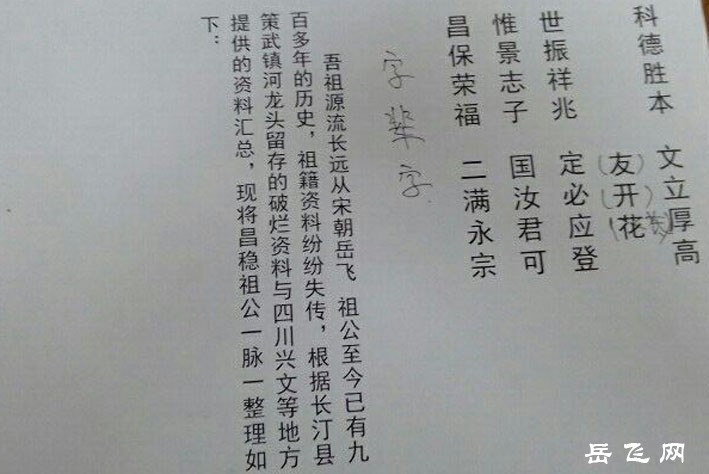 科德胜本 文立厚高
(友)(开)(花)
世振祥兆 定必应登
惟景志子 国汝君可
昌保荣福 二满永宗
字辈字
吾祖源流长远从宋朝岳飞 祖公至今已有九
百多年的历史，祖籍资料纷纷失传，根据长汀县
策武镇河龙头留存的破烂资料与四川兴文等地方
提供的资料汇总，现将昌稳祖公一脉一整理如
下：
岳飞网